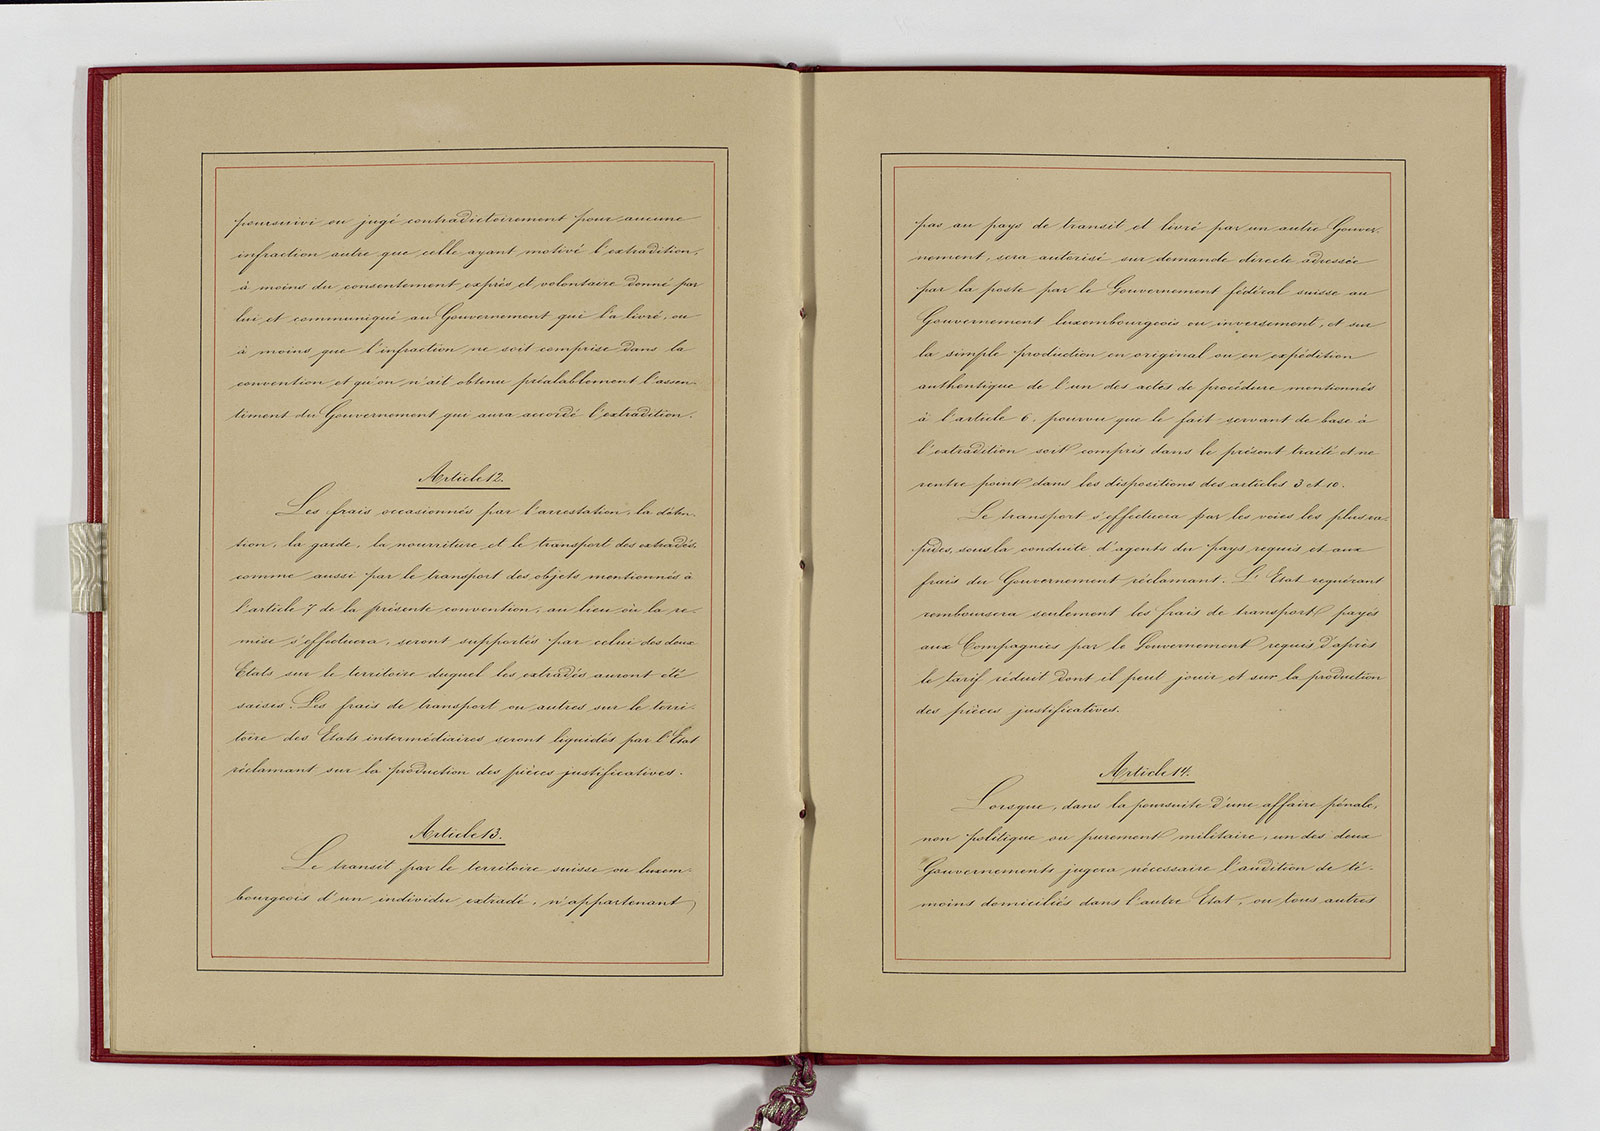 poursuivi ou jugé contradictoirement pour aucune
infraction autre que celle ayant motivé l'extradition,
à moins du consentement exprès et volontaire donné par
lui et communiqué au Gouvernement qui l'a livré, ou
à moins que l'infraction ne soit comprise dans la
convention et qu'on n'ait obtenu préalablement l'assen-
timent du Gouvernement qui aura accordé l'extradition.
Article 12.
Les frais occasionnés par l'arrestation, la déten-
tion, la garde, la nourriture et le transport des extradés,
comme aussi par le transport des objets mentionnés à
l'article 7 de la présente convention, au lieu où la re-
mise s'effectuera, seront supportés par celui des deux
Etats sur le territoire duquel les extradés auront été
saisis. Les frais de transport ou autres sur le terri-
toire des Etats intermédiaires seront liquidés par l'Etat
réclamant sur la production des pièces justificatives.
Article 13.
Le transit par le territoire suisse ou luxem-
bourgeois d'un individu extradé, n'appartenant
pas au pays de transit et livré par un autre Gouver-
nement, sera autorisé sur demande directe adressée
par la poste par le Gouvernement fédéral suisse au
Gouvernement luxembourgeois ou inversement, et sur
la simple production en original ou en expédition
authentique de l'un des actes de procédure mentionnés
à l'article 6, pourvu que le fait servant de base à
l'extradition soit compris dans le présent traité et ne
rentre point dans les dispositions des articles 3 et 10.
Le transport s'effectuera par les voies les plus ra-
pides, sous la conduite d'agents du pays requis et aux
frais du Gouvernement réclamant. L'Etat requérant
remboursera seulement les frais de transport payés
aux Compagnies par le Gouvernement requis d'après
le tarif réduit dont il peut jouir et sur la production
des pièces justificatives.
Article 14.
Lorsque, dans la poursuite d'une affaire pénale,
non politique ou purement militaire, un des deux
Gouvernements jugera nécessaire l'audition de té-
moins domiciliés dans l'autre Etat, ou tous autres